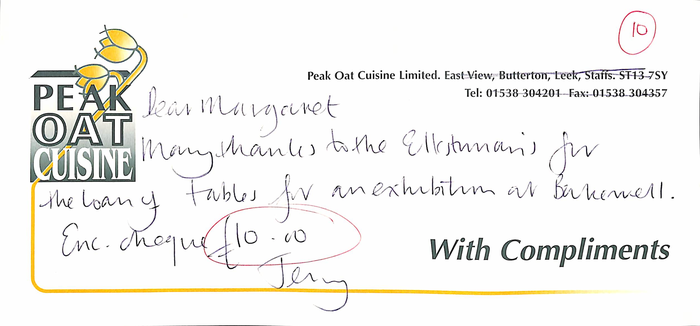 10
Peak Oat Cuisine Limited. East View, Butterton, Leek, Staffs. ST13 7SY
Tel: 01538 304201 Fax: 01538 304357
PEAK
OAT
CUISINE
Dear Margaret
Many thanks to the for
the loan of tables for an exhibition at Bakewell.
Enc. cheque £10.00
With Compliments
Jenny